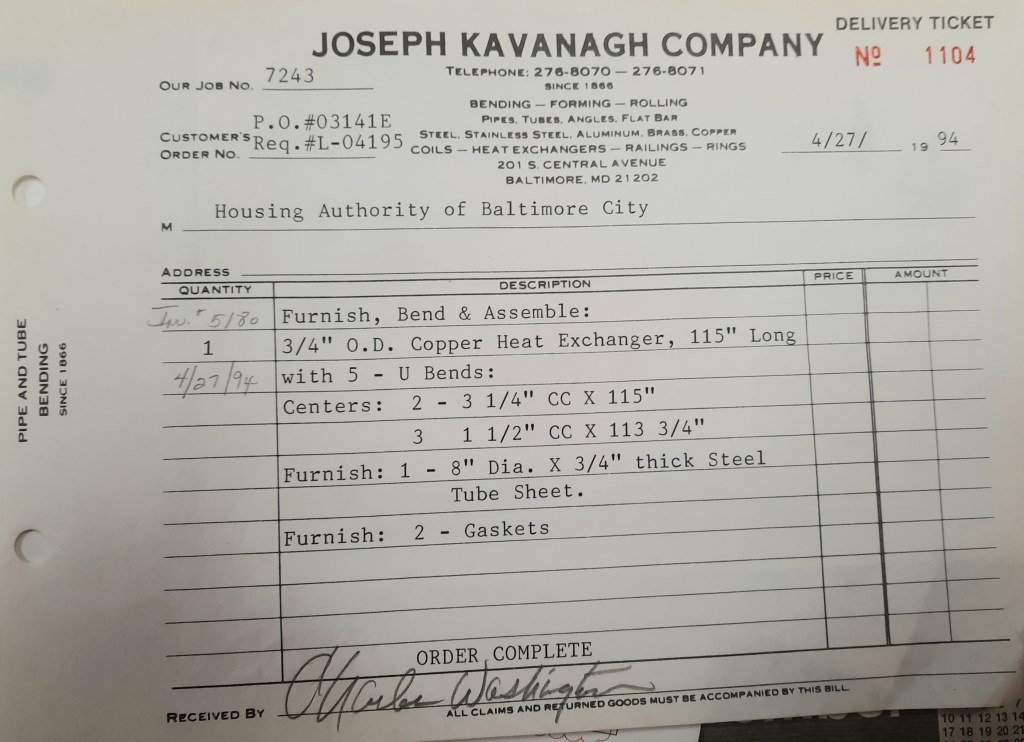 DELIVERY TICKET
JOSEPH KAVANAGH COMPANY
Nº 1104
TELEPHONE: 276-8070 — 276-8071
OUR JOB NO. 7243
SINCE 1866
BENDING — FORMING — ROLLING
PIPES, TUBES, ANGLES, FLAT BAR
P.O.#03141E
STEEL, STAINLESS STEEL, ALUMINUM, BRASS, COPPER
CUSTOMER'S Req.#L-04195
ORDER NO.
COILS — HEAT EXCHANGERS — RAILINGS — RINGS
4/27/ 19 94
201 S. CENTRAL AVENUE
BALTIMORE, MD 21202
M Housing Authority of Baltimore City
ADDRESS
QUANTITY DESCRIPTION PRICE AMOUNT
Inv. # 5180 Furnish, Bend & Assemble:
1 3/4" O.D. Copper Heat Exchanger, 115" Long
4/27/94 with 5 - U Bends:
Centers: 2 - 3 1/4" CC X 115"
3 1 1/2" CC X 113 3/4"
Furnish: 1 - 8" Dia. X 3/4" thick Steel
Tube Sheet.
Furnish: 2 - Gaskets
ORDER COMPLETE
RECEIVED BY Charles Washington
ALL CLAIMS AND RETURNED GOODS MUST BE ACCOMPANIED BY THIS BILL.
PIPE AND TUBE
BENDING
SINCE 1866
10 11 12 13 14
17 18 19 20 21